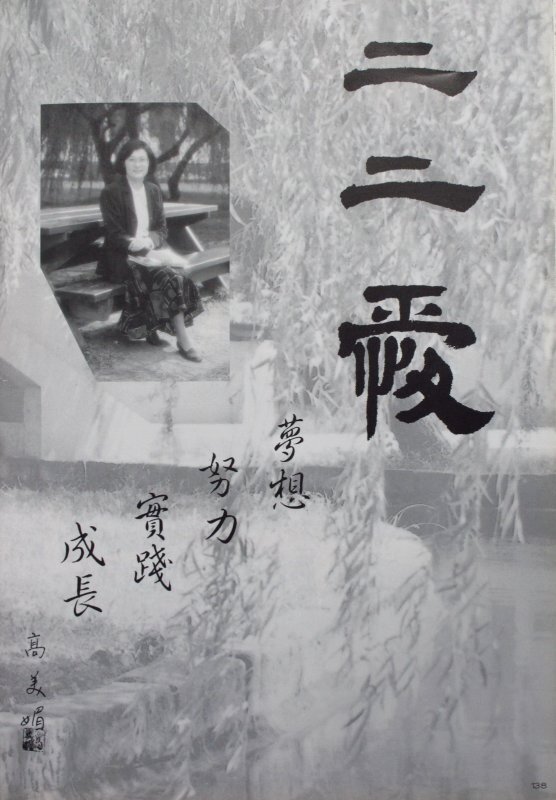 二二
夢想
努力
實踐
成長
高美媚
138